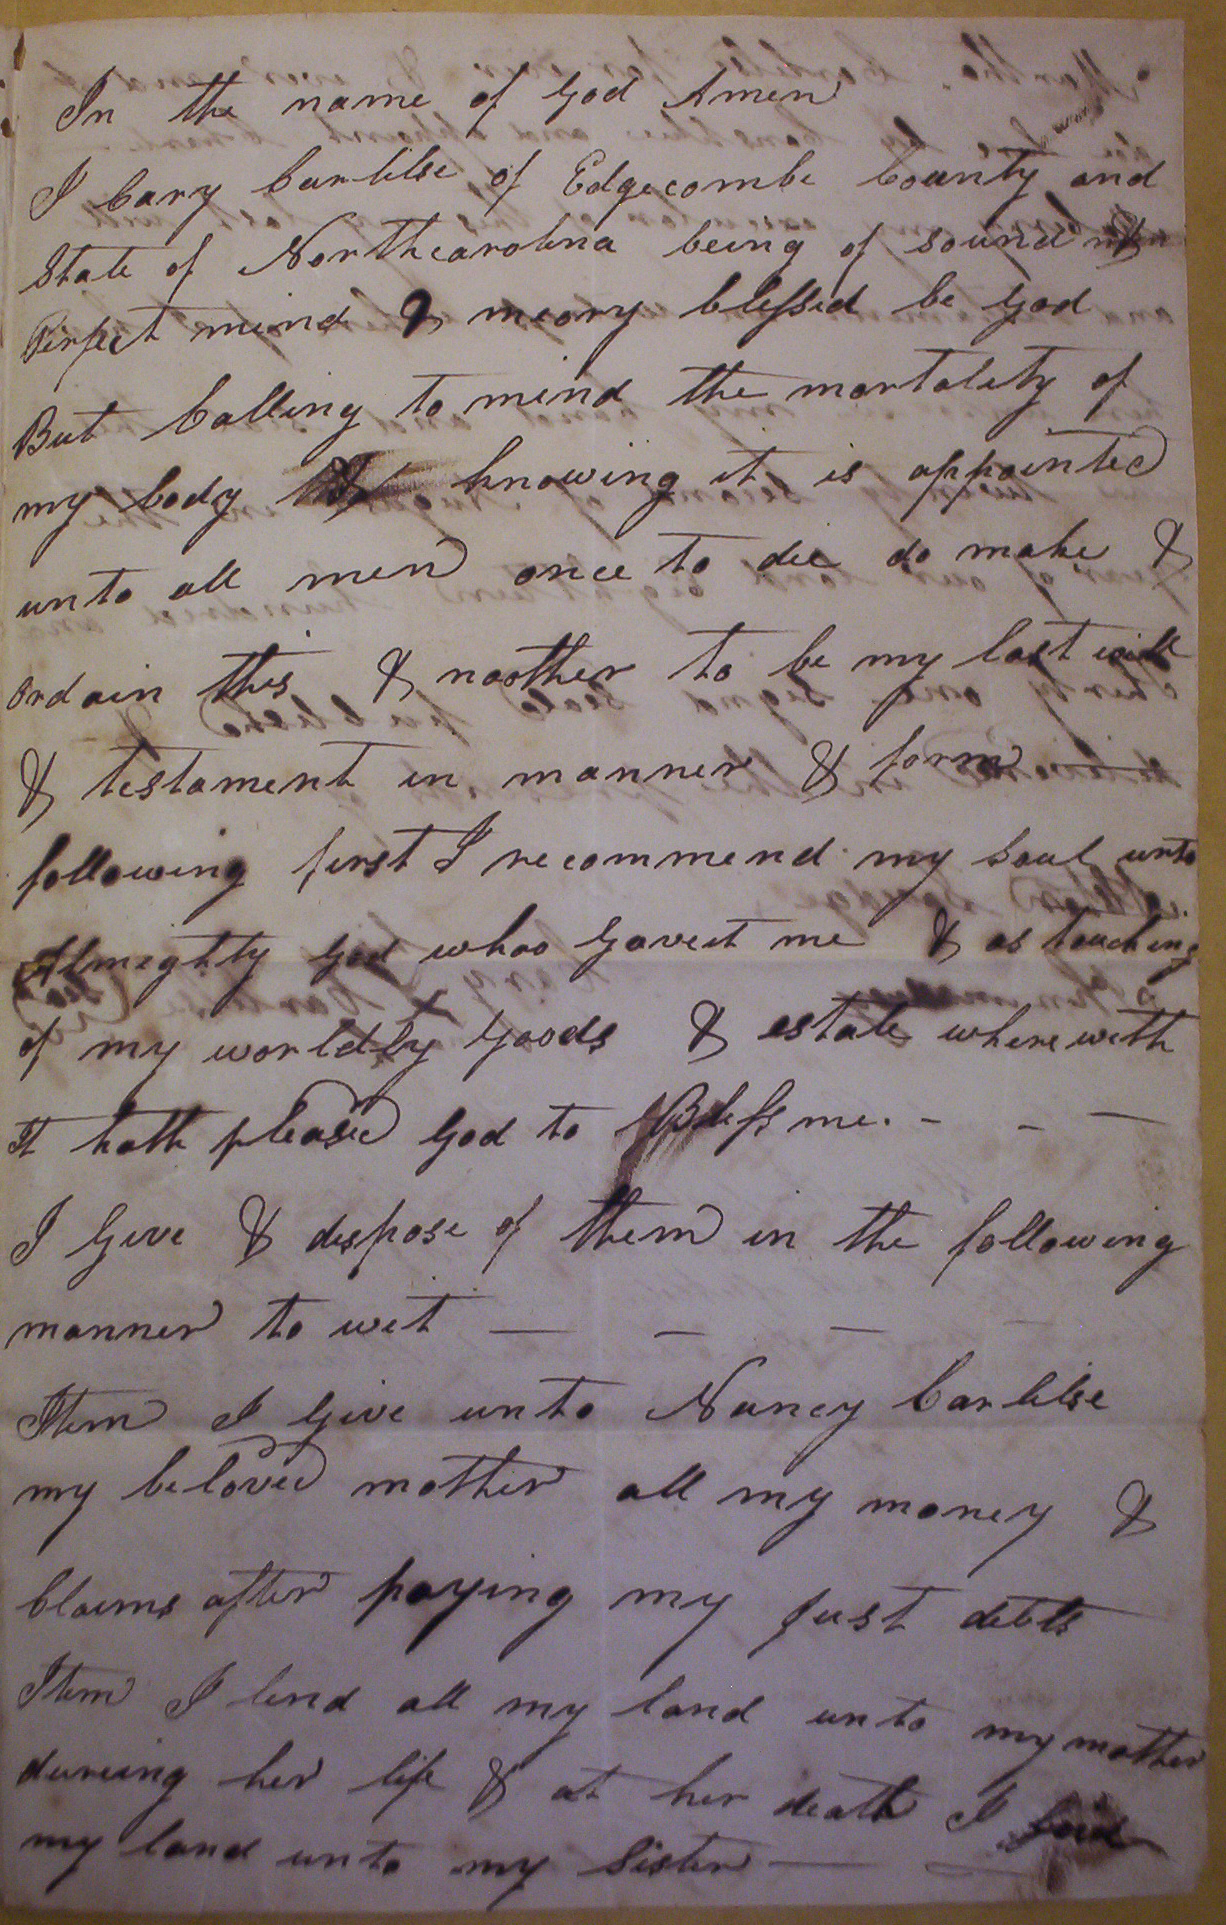 In the name of God Amen
I Cary Carlilse of Edgecombe County and
State of Northcarolina being of sound
Perfect mind & meory blessed be God
But Calling to mind the mortality of
my body & knowing it is appointed
unto all men once to die do make &
ordain this & noother to be my last will
& testament in manner & form
following first I recommend my Soul unto
Almighty God whoo Gavest me & as touching
of my worldly Goods & estate wherewith
It hath pleased God to Bless me. - - -
I Give & dispose of them in the following
manner to wit — — — —
Item I Give unto Nancy Carlilse
my beloved mother all my money &
Claims after paying my just debts
Item I lend all my land unto my mother
dureing her life & at her death I
my land unto my Sister —